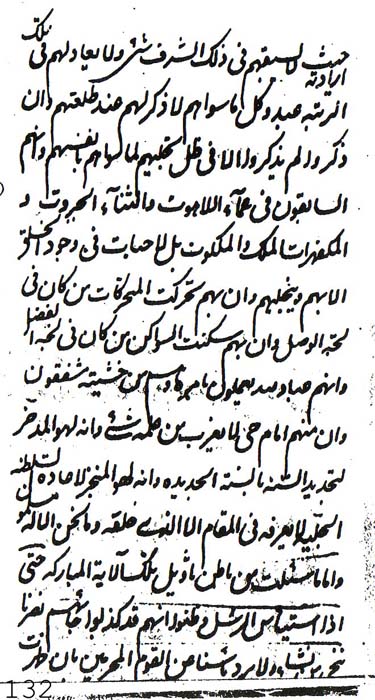 تلك
حيث لا يسبقهم فى ذلك الشرف شئ ولا يعادلهم فى
ارادته
الرتبه عبد وكل ما سواهم لا ذكر لهم عند طلعتهم وان
ذكروا لم يذكروا الا فى ظل تجليهم لما سواهم بانفسهم وانهم
السابقون فى عمآء اللاهوت والثنآء الجبروت و
المكفهرات الملك والملكوت بل لا فى وجود الخلق
الا بهم وبتجليهم وان بهم تحركت المتحركات من كان فى
لجة الوصل وان بهم سكنت السواكن من كان فى لجة الفضل
وانهم عباد يعملون بامره وهم من خشيته مشفقون
وان منهم امام حى لا يعزب من علمه شئ وانه لهو المدخر
لتجديد السنه بالسنة الجديده وانه لهو المنجز لاعاده السلطنه
لا يعرفه فى المقام الا الذى خلقه وما نحن الا له مسلمون
واما ما سئلت من باطن تاويل تلك الآية المباركه حتى
اذا استيأس الرسل وظنوا انهم قد كذبوا جائهم نصرنا
ولا يرد باسنا عن القوم المجرمين بان
132